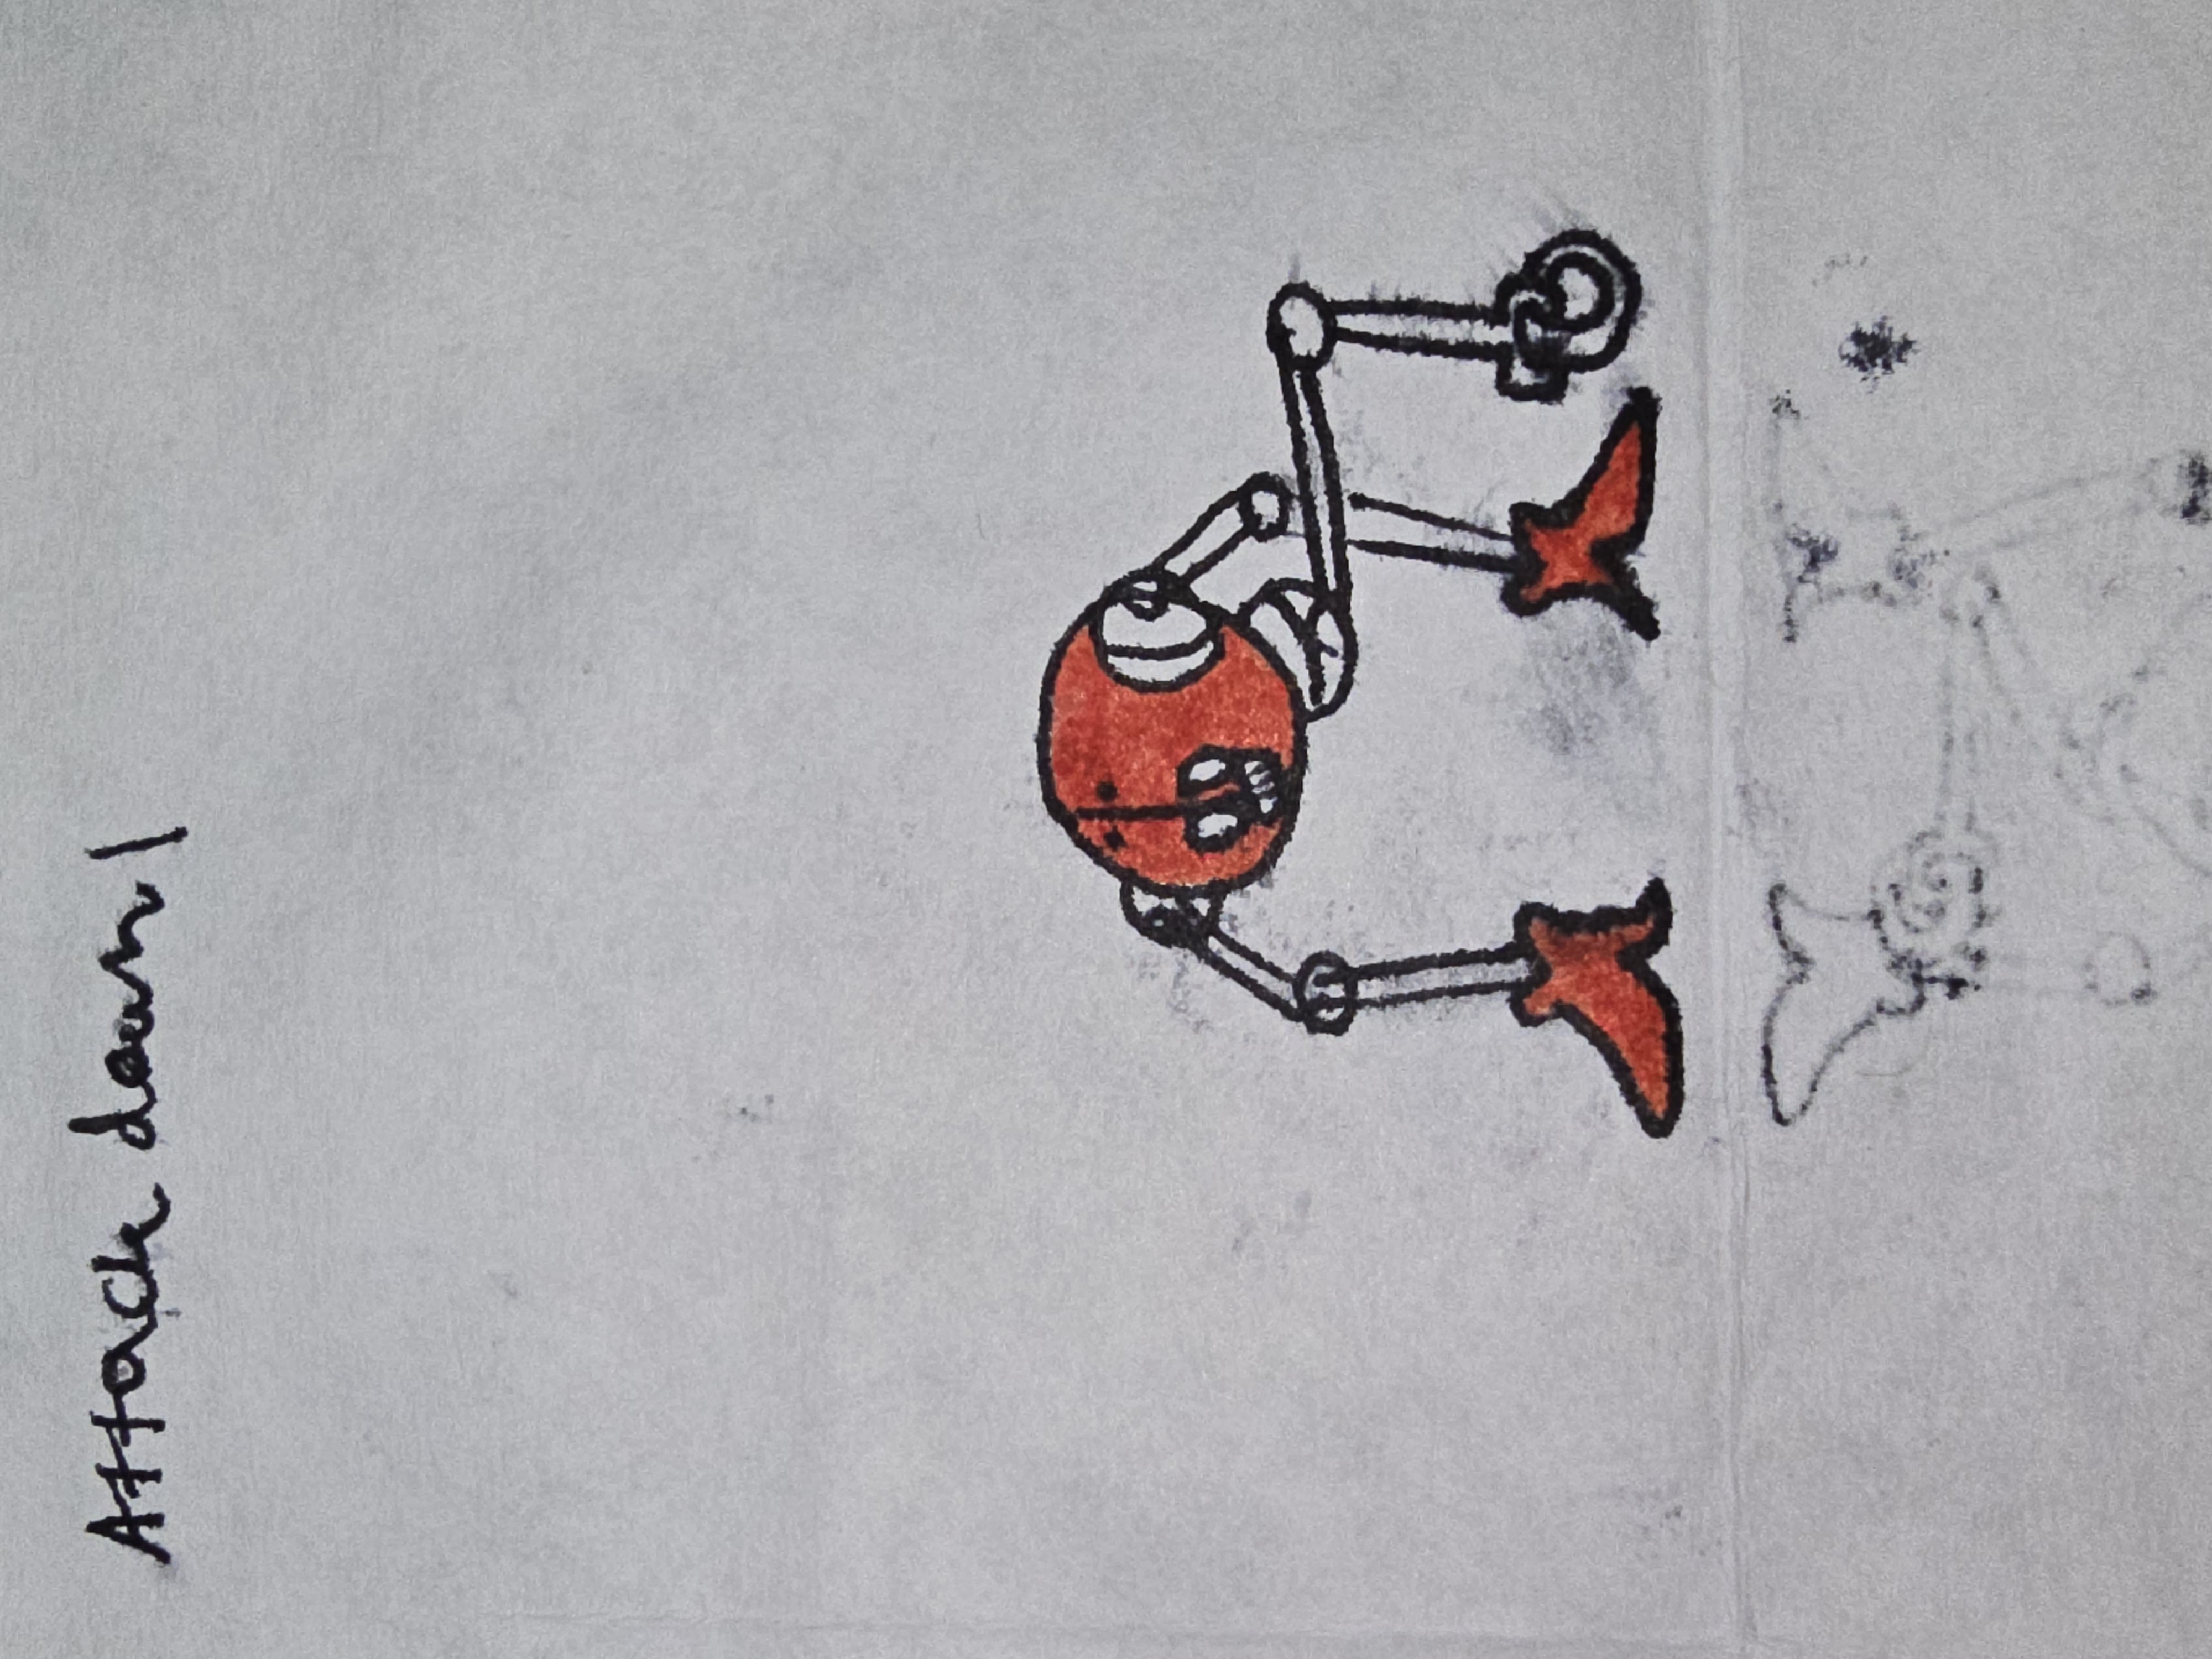 Attack down 1